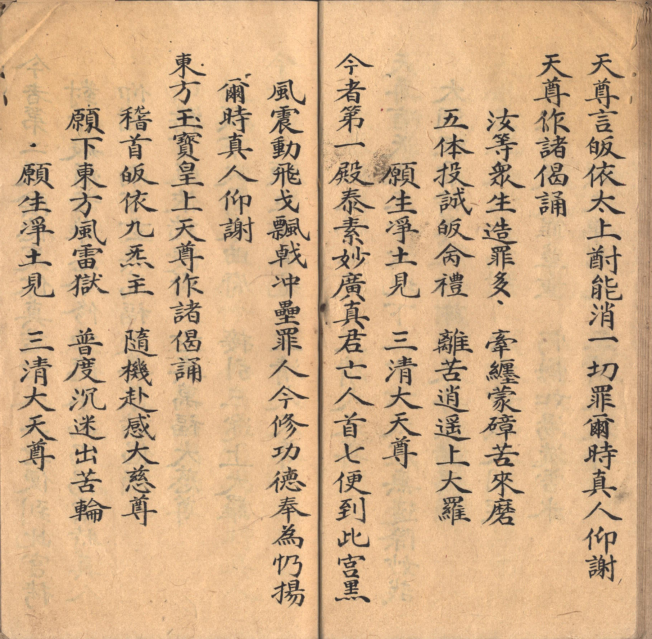 天尊言皈依太上酎能消一切罪爾時真人仰謝
天尊作諸偈誦
汝等衆生造罪多 牽纏蒙磪苦來磨
五体投誠皈命禮 離苦逍遥上大羅
願生凈土見 三清大天尊
今者第一殿泰素妙廣真君亡人首七便到此宮黑
風震動飛戈飄戟冲壘罪人今修功德奉為忻揚
爾時真人仰謝
東方玉寶皇上天尊作諸偈誦
稽首皈依九炁主 隨機赴感大慈尊
願下東方風雷獄 普度沉迷出苦輪
願生凈土見 三清大天尊